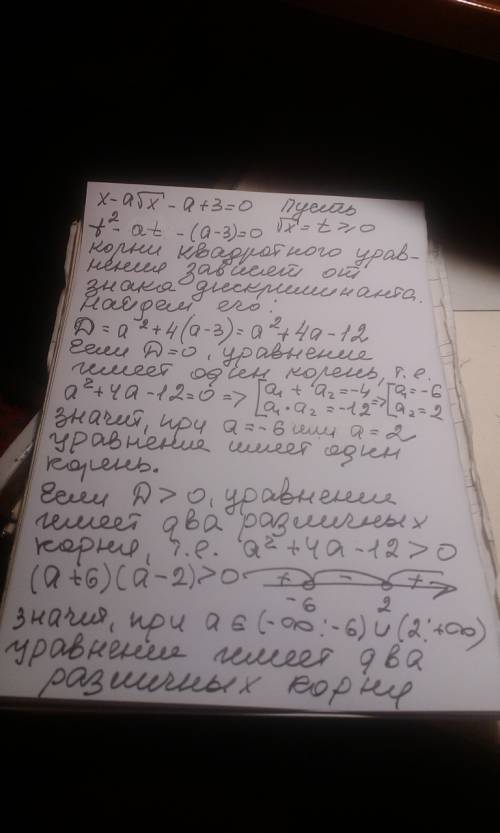 x-a√x - a+3=0 Пусть
t² - at - (a-3)=0 √x = t ≥ 0
корни квадратного урав-
нения зависят от
знака дискриминанта.
Найдем его:
D = a² + 4(a-3) = a² + 4a - 12
Если D=0, уравнение
имеет один корень, т.е.
a² + 4a - 12 = 0 => [a₁ + a₂ = -4 => [a₁ = -6
a₁ · a₂ = -12 a₂ = 2
значит, при a = -6 или a = 2
уравнение имеет один
корень.
Если D > 0, уравнение
имеет два различных
корня, т.е. a² + 4a - 12 > 0
(a+6)(a-2) > 0 + - +
-6 2
значит, при a ∈ (-∞; -6) ∪ (2; +∞)
уравнение имеет два
различных корня